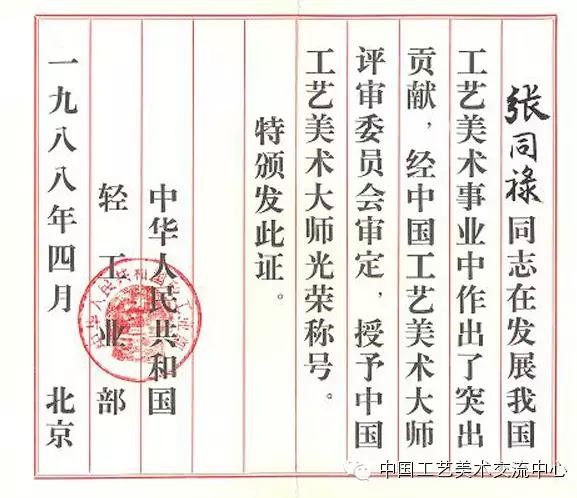 张同禄同志在发展我国
工艺美术事业中作出了突出
贡献，经中国工艺美术大师
评审委员会审定，授予中国
工艺美术大师光荣称号。
特颁发此证。
中华人民共和国
轻工业部
一九八八年四月 北京
中国工艺美术交流中心